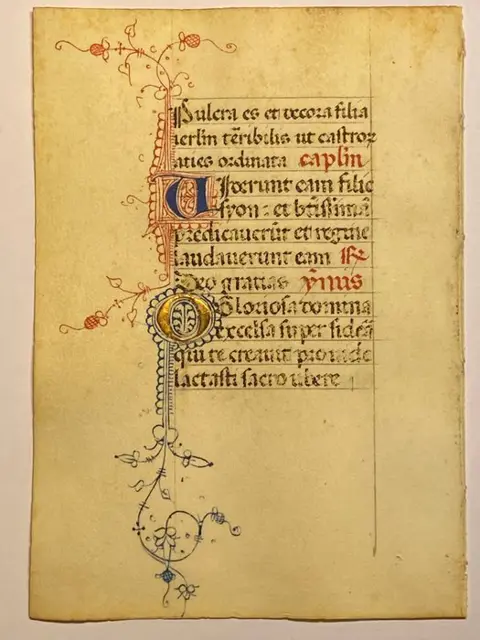 Pulcra es et decora filia
ierlm̄ terībilis ut castroꝝ
aties ordinata caplm
Viderunt eam filie
syon : et btīssimā
predicauerūt et regine
laudauerunt eam
Deo gratias ymus
O Gloriosa domina
excelsa super sidera
qui te creauit prouide
lactasti sacro ubere